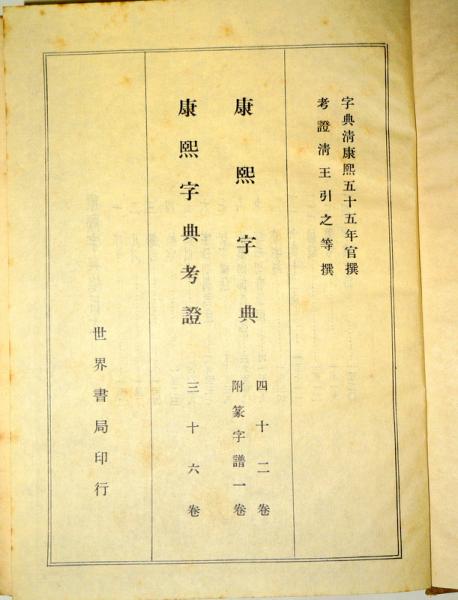 字典清康熙五十五年官撰
考證清王引之等撰
康熙字典
四十二卷
附篆字譜一卷
康熙字典考證
三十六卷
世界書局印行